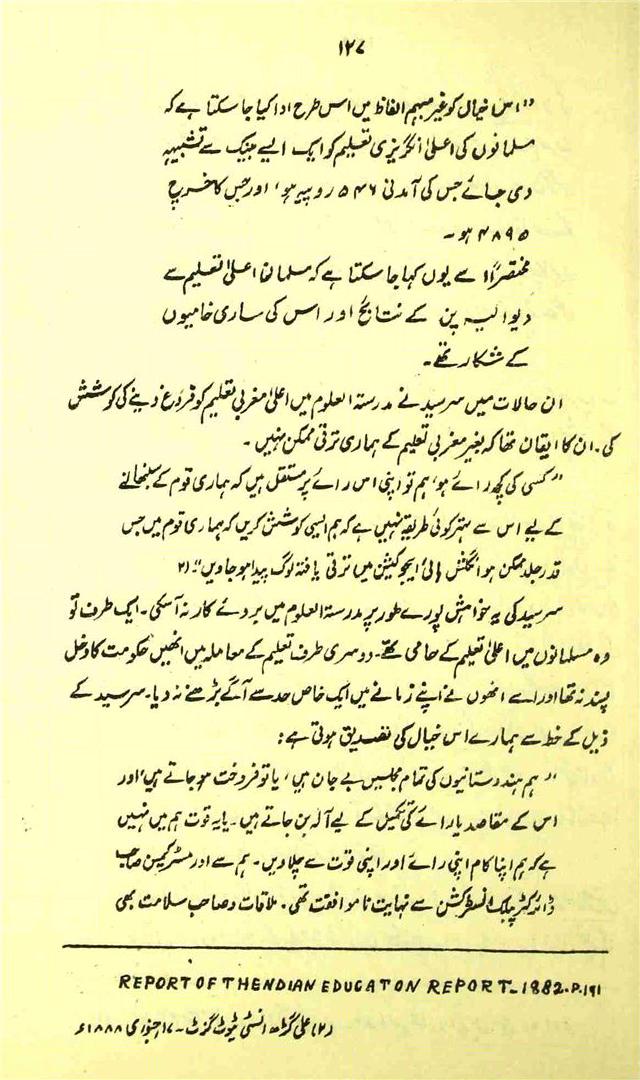 ۱۲۷
"اس خیال کو غیر مبہم الفاظ میں اس طرح ادا کیا جا سکتا ہے کہ
مسلمانوں کی اعلیٰ انگریزی تعلیم کو ایک ایسے بینک سے تشبیہہ
دی جائے جس کی آمدنی ۵۴۶ روپیہ ہو، اور جس کا خرچ
۴۸۹۵ ہو ۔
مختصراً اسے یوں کہا جا سکتا ہے کہ مسلمان اعلیٰ تعلیم سے
دیوالیہ پن کے نتائج اور اس کی ساری خامیوں
کے شکار تھے ۔
ان حالات میں سرسید نے مدرستہ العلوم میں اعلیٰ مغربی تعلیم کو فروغ دینے کی کوشش
کی ۔ ان کا ایقان تھا کہ بغیر مغربی تعلیم کے ہماری ترقی ممکن نہیں ۔
"کسی کی کچھ رائے ہو، ہم تو اپنی اس رائے پر مستقل ہیں کہ ہماری قوم کے سنبھالنے
کے لیے اس سے بہتر کوئی طریقہ نہیں ہے کہ ہم ایسی کوشش کریں کہ ہماری قوم میں جس
قدر جلد ممکن ہو انگلش ہائی ایجوکیشن میں ترقی یافتہ لوگ پیدا ہو جاویں": (۲
سرسید کی یہ خواہش پورے طور پر مدرستہ العلوم میں بروئے کار نہ آسکی ۔ ایک طرف تو
وہ مسلمانوں میں اعلیٰ تعلیم کے حامی تھے ۔ دوسری طرف تعلیم کے معاملہ میں انھیں حکومت کا دخل
پسند نہ تھا اور اسے انھوں نے اپنے زمانے میں ایک خاص حد سے آگے بڑھنے نہ دیا ۔ سرسید کے
ذیل کے خط سے ہمارے اس خیال کی تصدیق ہوتی ہے :
"ہم ہندوستانیوں کی تمام مجلسیں بے جان ہیں، یا تو فروخت ہو جاتے ہیں، اور
اس کے مقاصد یا رائے کی تکمیل کے لیے آلہ بن جاتے ہیں ۔ یا یہ قوت ہم میں نہیں
ہے کہ ہم اپنا کام اپنی رائے اور اپنی قوت سے چلاویں ۔ ہم سے اور مسٹر کیمپسن صاحب
ڈائرکٹر پبلک انسٹرکشن سے نہایت ناموافقت تھی ۔ ملاقات و صاحب سلامت بھی
REPORT OF THENDIAN EDUCATON REPORT_1882.P.191
(۲) علی گڑھ انسٹی ٹیوٹ گزٹ ۔ ۱۷ جنوری ۱۸۸۸ء